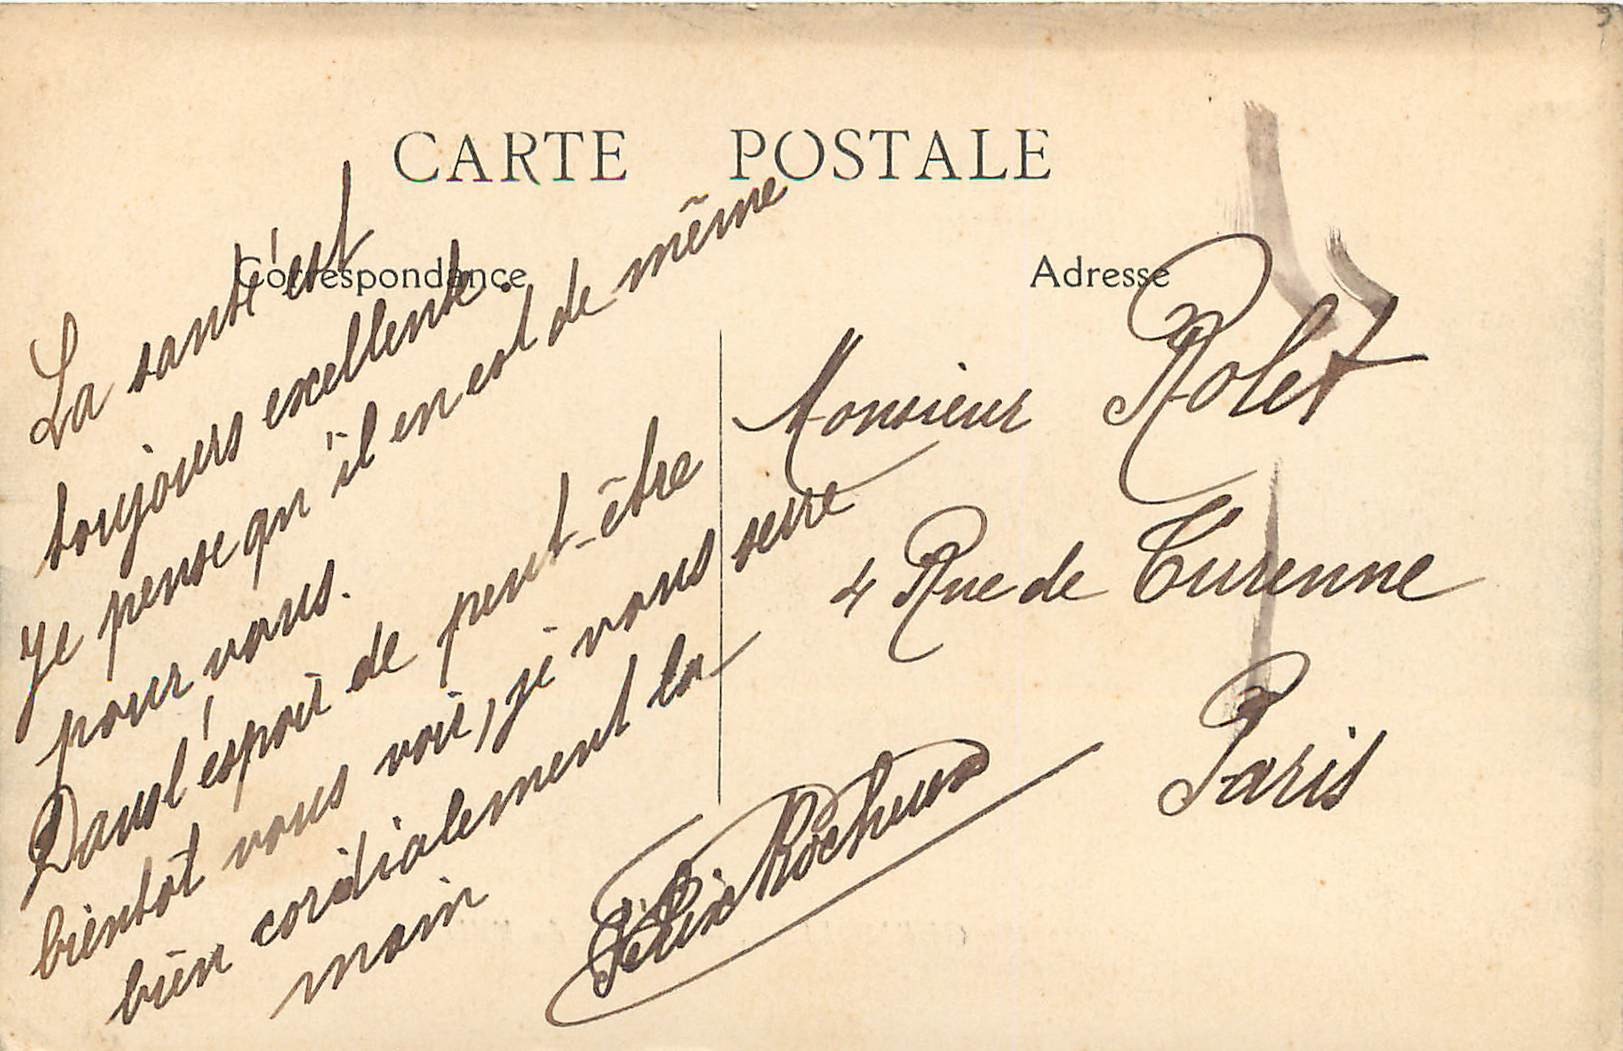 CARTE POSTALE
Correspondance
Adresse
La santé est
toujours excellente.
Je pense qu'il en est de même
pour vous.
Dans l'espoir de peut-être
bientôt vous voir, je vous serre
bien cordialement la
main
Félix
Monsieur Rolet
4 Rue de Turenne
Paris